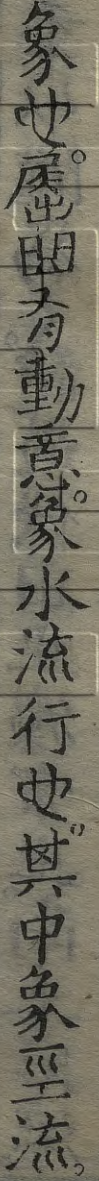 象也。屈曲有動意。象水流行也。其中象巠流。